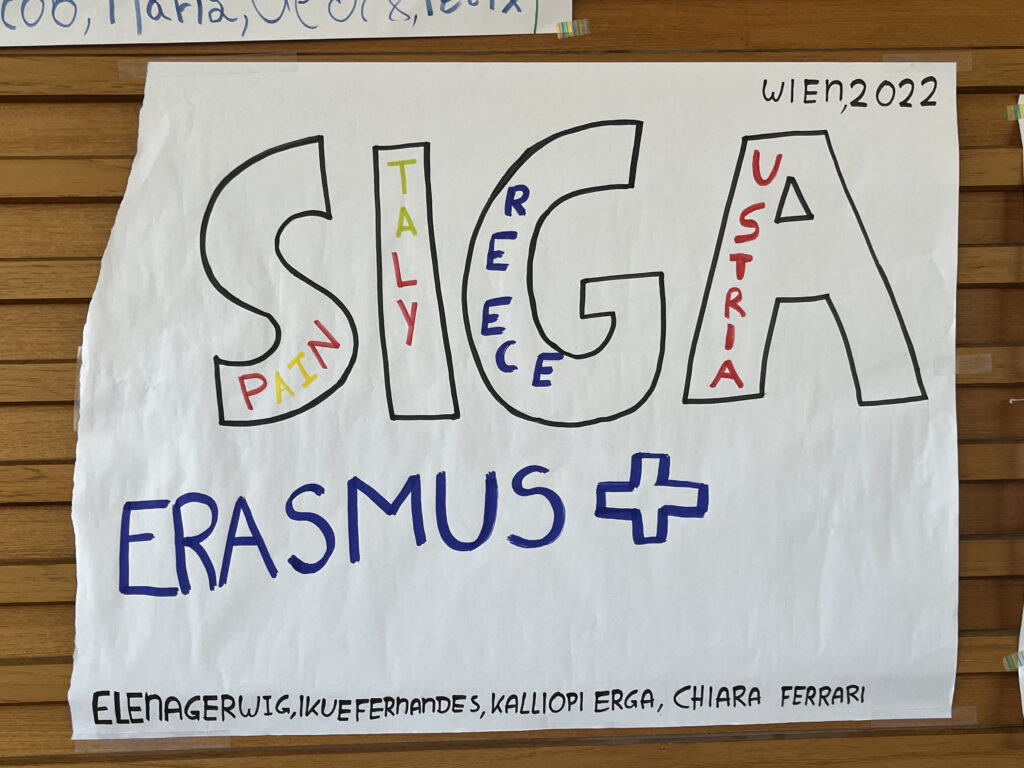 Maria,
WIEN, 2022
SIGA
PAIN
TALY
REECE
USTRIA
ERASMUS +
ELENA GERWIG, IKUE FERNANDES, KALLIOPI ERGA, CHIARA FERRARI